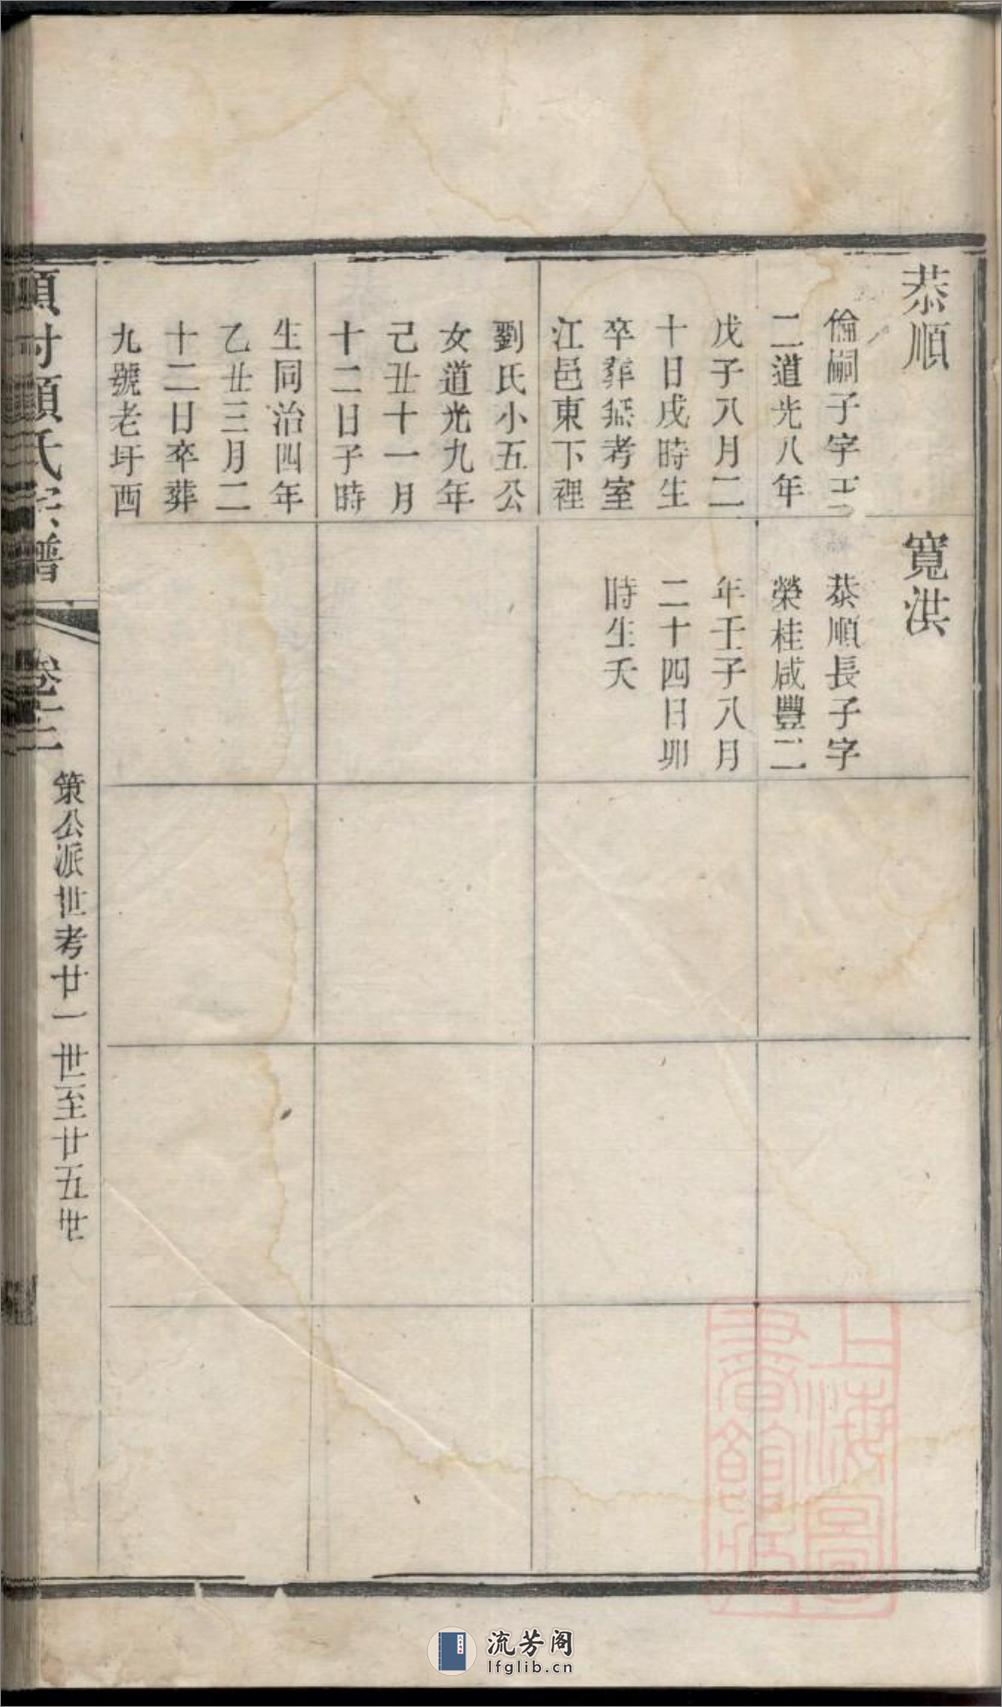 恭順
倫嗣子字玉
二道光八年
戊子八月二
十日戌時生
卒葬無考室
江邑東下裡
劉氏小五公
女道光九年
己丑十一月
十二日子時
生同治四年
乙丑三月二
十二日卒葬
九號老圩酉
寬洪
恭順長子字
榮桂咸豐二
年壬子八月
二十四日卯
時生夭
顧氏宗譜
卷十二
策公派世考廿一世至廿五世
上海圖書館藏
流芳阁
lfglib.cn